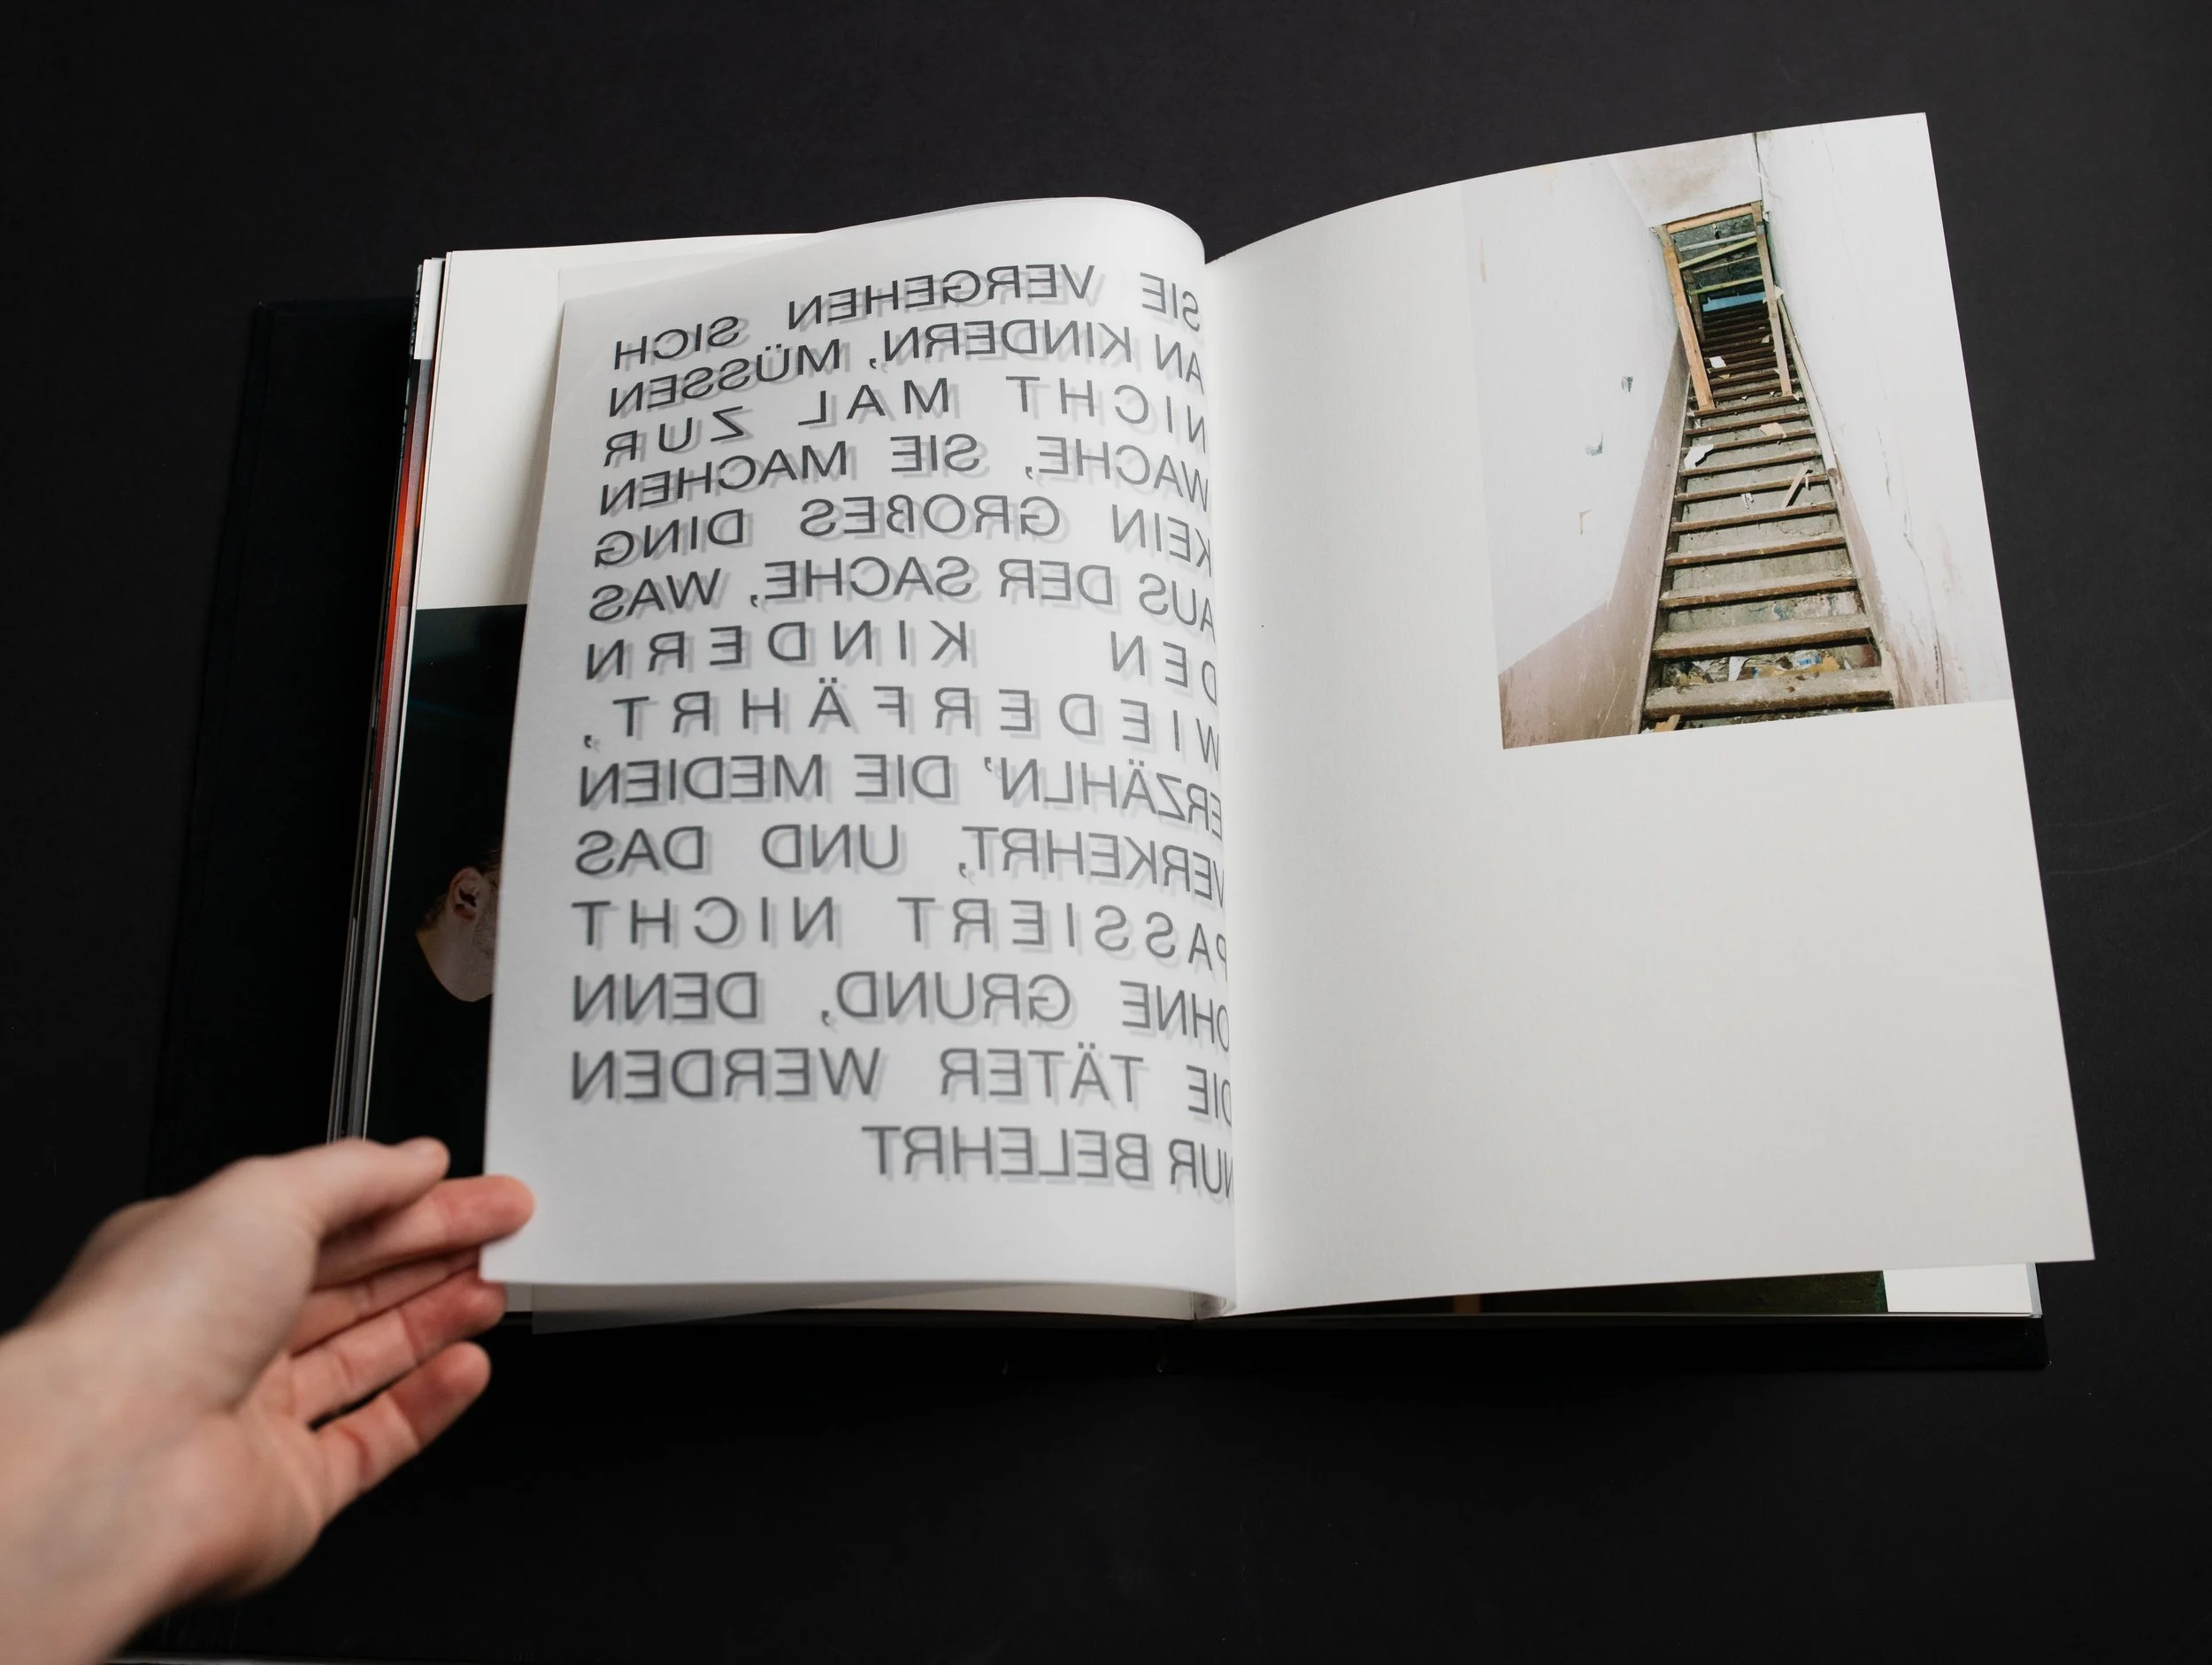 SIE VERGEHEN SICH
AN KINDERN, MÜSSEN
NICHT MAL ZUR
WACHE, SIE MACHEN
KEIN GROßES DING
AUS DER SACHE, WAS
DEN KINDERN
WIEDERFÄHRT,
ERZÄHLN’ DIE MEDIEN
VERKEHRT, UND DAS
PASSIERT NICHT
OHNE GRUND, DENN
DIE TÄTER WERDEN
NUR BELEHRT